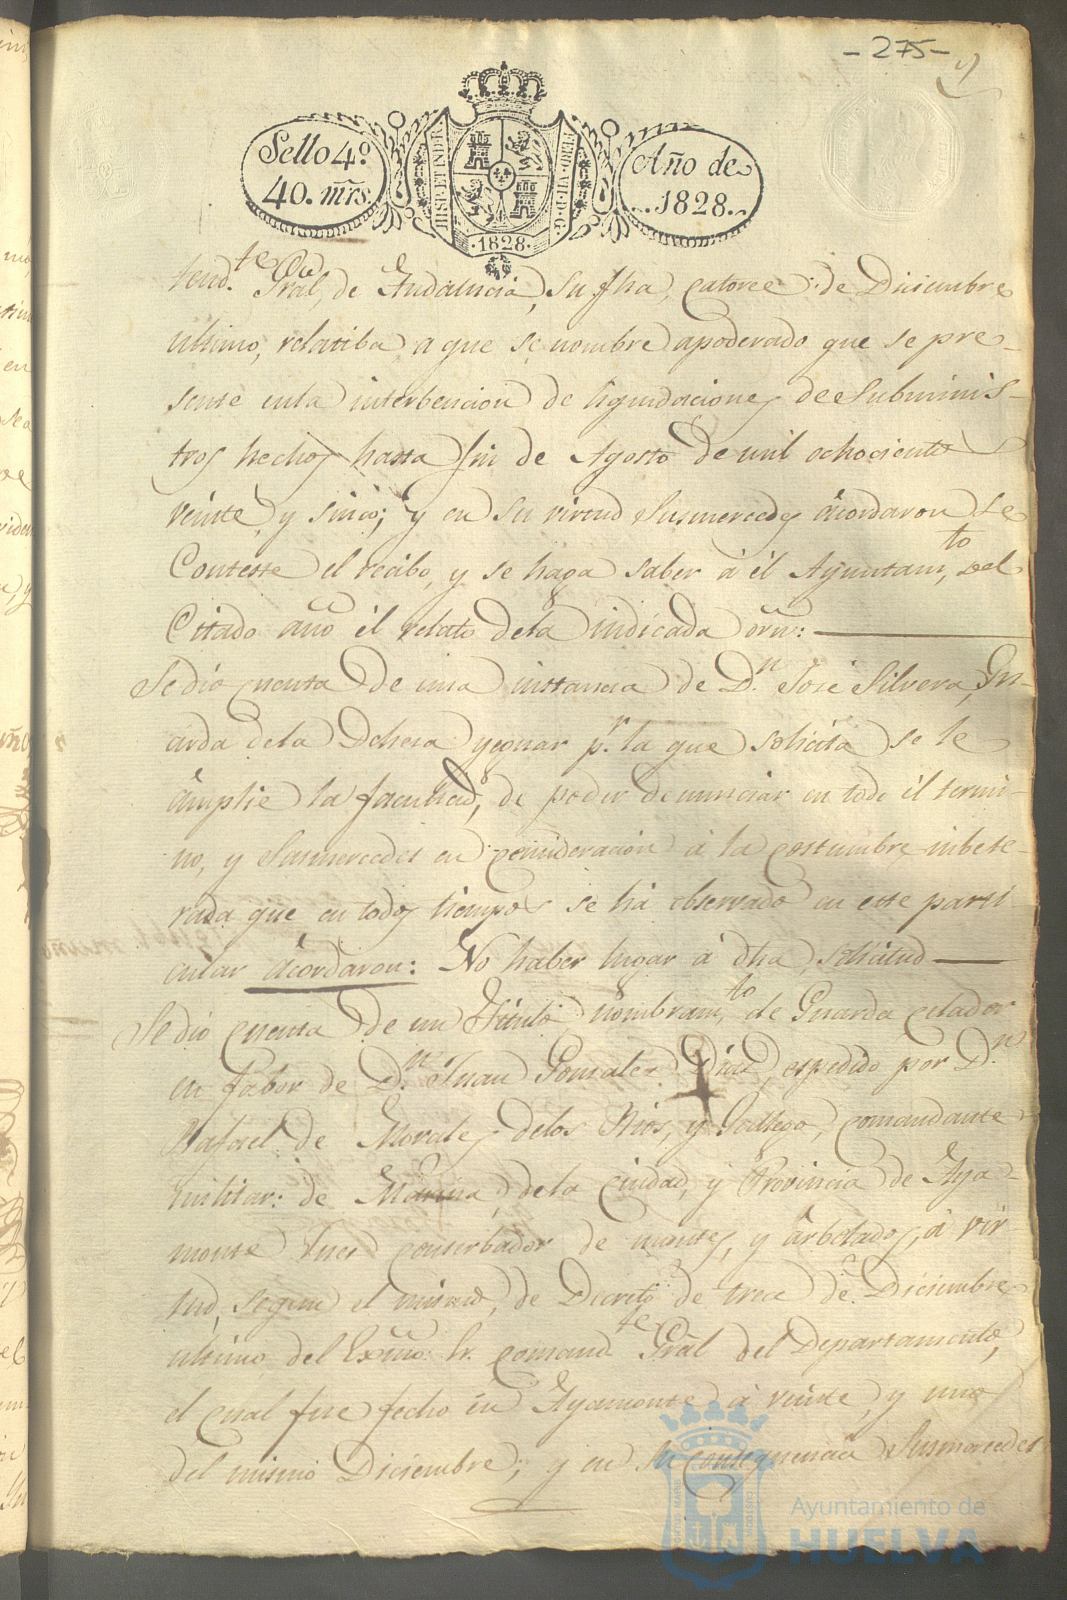 - 275 -
Sello 4º
40. mrs.
HISP. ET IND. R.
FERD. VII. D. G.
· 1828 ·
Año de
1828.
tend.te Gral, de Andalucia, su fha, catorce de Diciembre
ultimo, relatiba a que se nombre apoderado que se pre-
sente enla interbencion de liquidaciones de Subminis-
tros hechos hasta fin de Agosto de mil ochocientos
veinte, y sinco; y en su virtud Susmercedes acordaron se
Conteste el recibo, y se haga saber á el Ayuntam.to, del
Citado año él relato dela indicada orn:
Se dió cuenta de una instancia de D.n José Silvera, Gu-
arda dela Dehesa yeguar p.r la que solicita se le
amplie la facultad, de poder denunciar en todo él termi-
no, y Susmercedes en consideracion á la costumbre inbete-
rada que en todos tiempos se há observado en este parti
cular acordaron: No haber lugar á dha, solicitud
Se dió cuenta de un Titulo, nombram.to de Guarda celador
en fabor de D.n Juan Gonzalez Diaz, espedido por D.n
Rafael de Morales delos Rios, y Gallego, comandante
militar: de Marina, dela ciudad, y Provincia de Aya-
monte Juez conserbador de montes, y arbolados, á vir-
tud, segun el mismo, de Decreto de trece de Diciembre
ultimo del Exmo. Sr. comand.te Gral del Departamento,
el cual fue fecho en Ayamonte á veinte, y uno
del mismo Diciembre; y en su consequencia Susmercedes
Ayuntamiento de
HUELVA